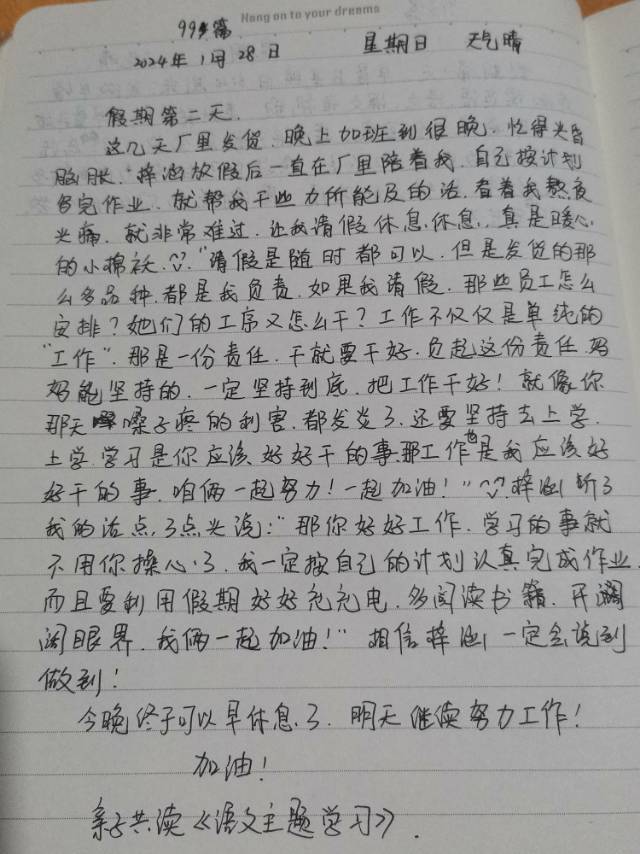 Hang on to your dreams
99篇
2024年1月28日 星期日 天气晴
假期第二天.
这几天厂里发货.晚上加班到很晚.忙得头昏
脑胀.梓涵放假后一直在厂里陪着我.自己按计划
写完作业.就帮我干些力所能及的活.看着我熬夜
头痛.就非常难过.让我请假休息休息.真是暖心
的小棉袄."请假是随时都可以.但是发货的那
么多品种.都是我负责.如果我请假.那些员工怎么
安排?她们的工序又怎么干?工作不仅仅是单纯的
"工作".那是一份责任.干就要干好.负起这份责任.妈
妈能坚持的.一定坚持到底.把工作干好!就像你
那天嗓子疼的利害.都发炎了.还要坚持去上学.
上学.学习是你应该好好干的事.那工作也是我应该好
好干的事.咱俩一起努力!一起加油!"梓涵听了
我的话点了点头说:"那你好好工作.学习的事就
不用你操心了.我一定按自己的计划认真完成作业.
而且要利用假期好好充充电.多阅读书籍.开阔
阔眼界.我俩一起加油!"相信梓涵一定会说到
做到!
今晚终于可以早休息了.明天继续努力工作!
加油!
亲子共读《语文主题学习》.